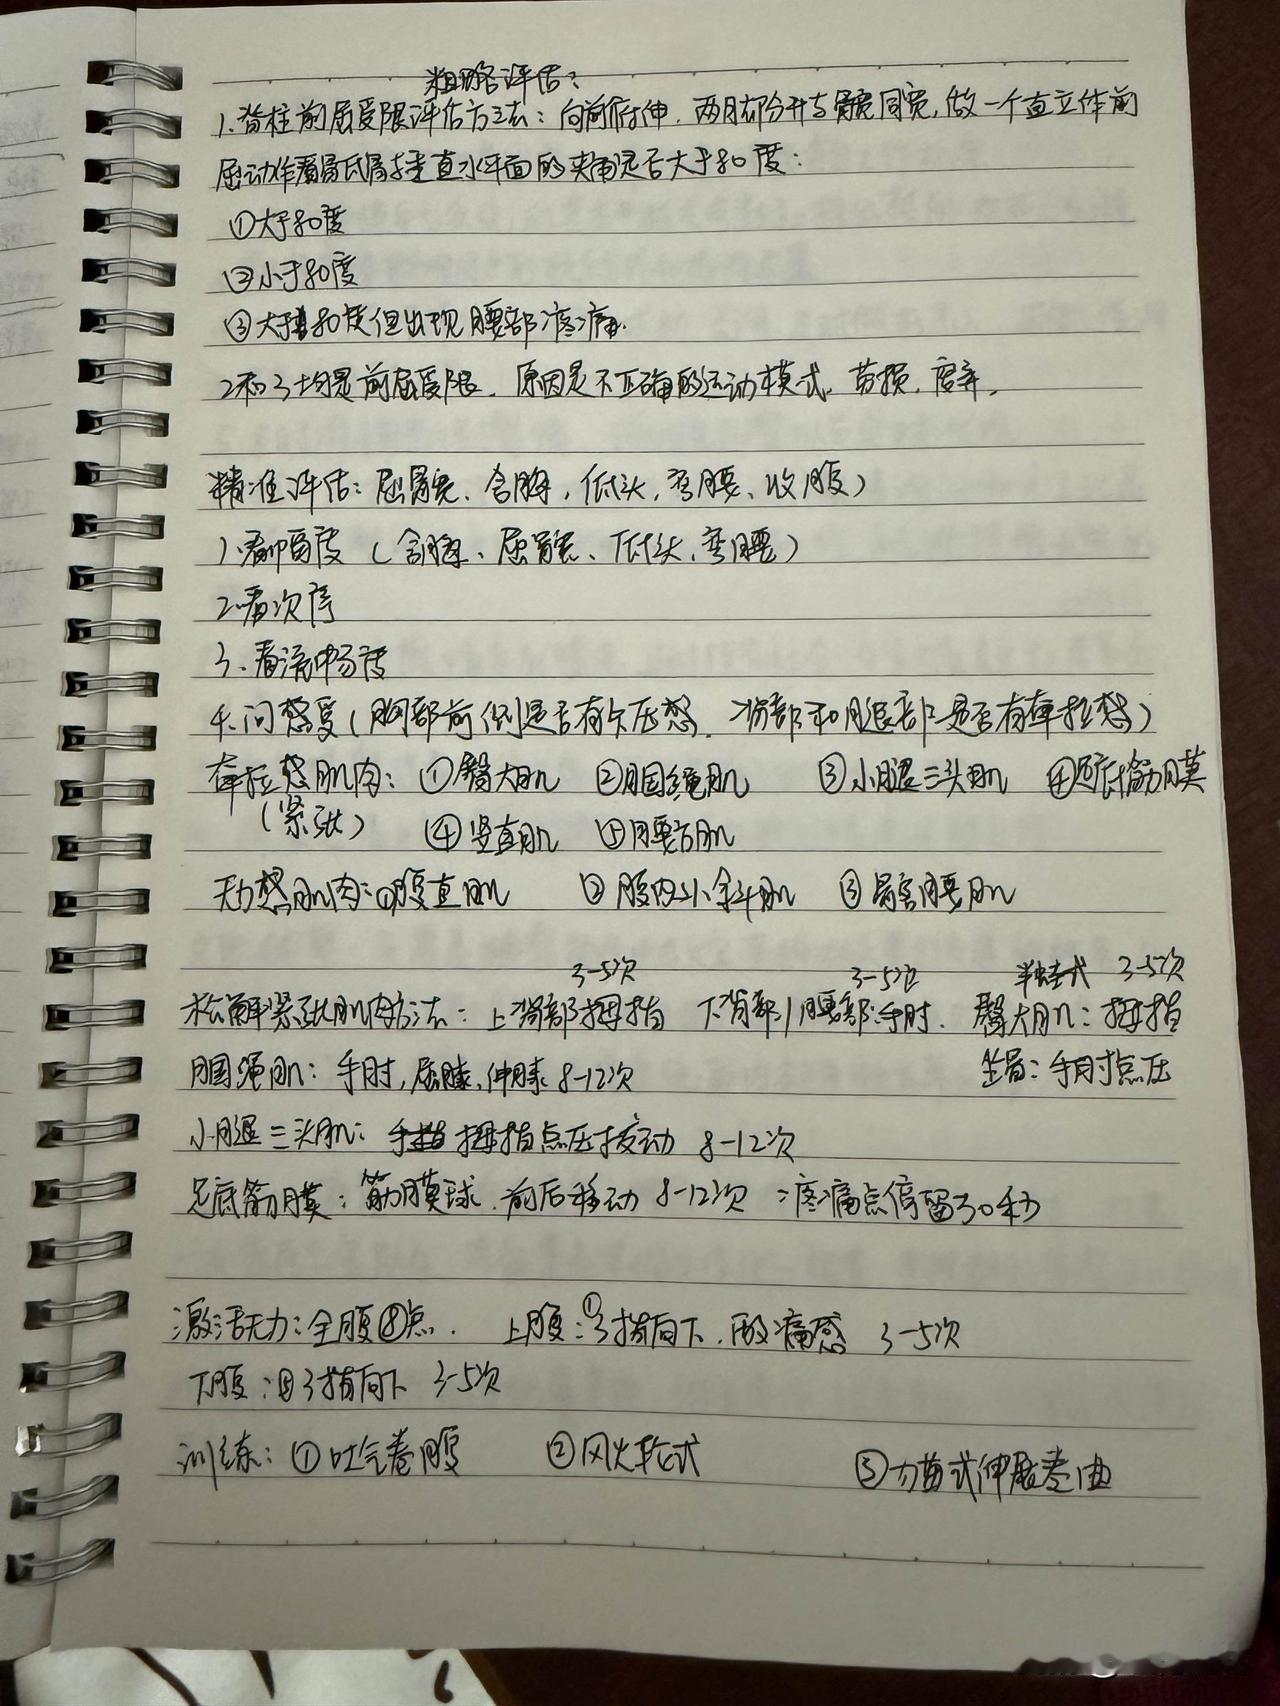 粗略评估:
1.脊柱前屈受限评估方法:向前行伸.两月却分开与髋同宽,做一个直立体前
屈动作看骶骨垂直水平面的夹角是否大于80度:
①大于80度
②小于80度
③大于80度但出现腰部疼痛.
2和3均是前屈受限.原因是不正确的运动模式.劳损,废弃.
精准评估:屈髋、含胸,低头,弯腰、收腹)
1.看幅度(含胸、屈髋、低头,弯腰)
2.看次序
3、看流畅度
4.问感受(胸部前侧是否有欠压感.背部和腿部是否有牵拉感)
牵拉感肌肉:①臀大肌 ②腘绳肌 ③小腿三头肌 ④足底筋膜
(紧张) ④竖直肌 ⑤腰方肌
无力感肌肉:①腹直肌 ②腹内外斜肌 ③髂腰肌
3-5次 3-5次 半蛙式 3-5次
松解紧张肌肉方法:上背部拇指 下背部/腰部:手肘. 臀大肌:拇指
腘绳肌:手肘,屈膝,伸膝 8-12次 坐骨:手肘点压
小腿三头肌:拇指点压拨动 8-12次
足底筋膜:筋膜球.前后移动 8-12次 疼痛点停留30秒
激活无力:全腹⑧点. 上腹:①3指向下.酸痛感 3-5次
下腹:②3指向下 3-5次
训练:①吐气卷腹 ②风火轮式 ③万苗式伸展卷曲